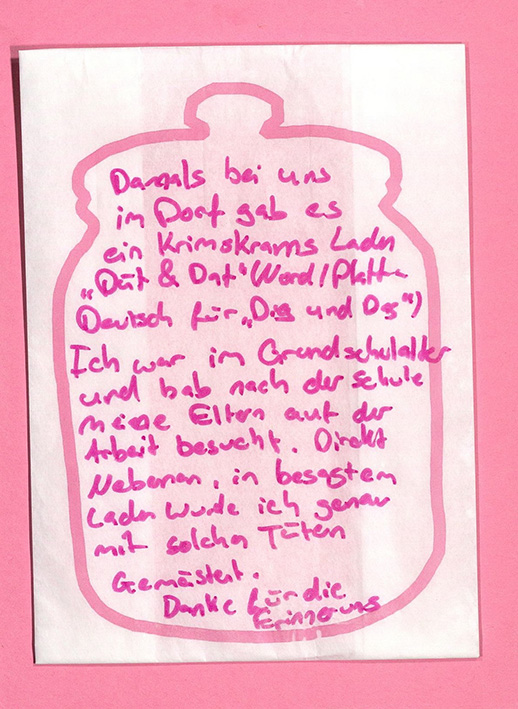 Damals bei uns
im Dorf gab es
ein Krimskrams Laden
„Düt & Dat“ (Nord/Platt
Deutsch für „Dis und Das“)
Ich war im Grundschulalter
und hab nach der Schule
meine Eltern auf der
Arbeit besucht. Direkt
Nebenan, in besagtem
Laden wurde ich genau
mit solchen Tüten
Gemästet.
Danke für die
Erinnerung